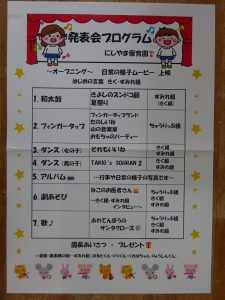 発表会プログラム
にしやま保育園
～オープニング～ 日常の様子ムービー 上映
はじめの言葉 きく・すみれ組
1. 和太鼓
きよしのズンドコ節
夏祭り
すみれ組
(きく組)
2. フィンガータップ
フィンガータップランド
たのしいね
山の音楽家
おもちゃのパーティー
ちゅうりっぷ組
3. ダンス (女の子)
それもいいね
きく組
すみれ組
4. ダンス (男の子)
TAKIO's SOHRAN 2
きく組
すみれ組
5. アルバム
…行事や日常の様子の写真です…
6. 劇あそび
ねこのお医者さん
～きく組・すみれ組
インタビュー～
ちゅうりっぷ組
きく組
すみれ組
7. 歌♪
あわてんぼうの
サンタクロース
ちゅうりっぷ組
きく組
すみれ組
園長あいさつ・プレゼント